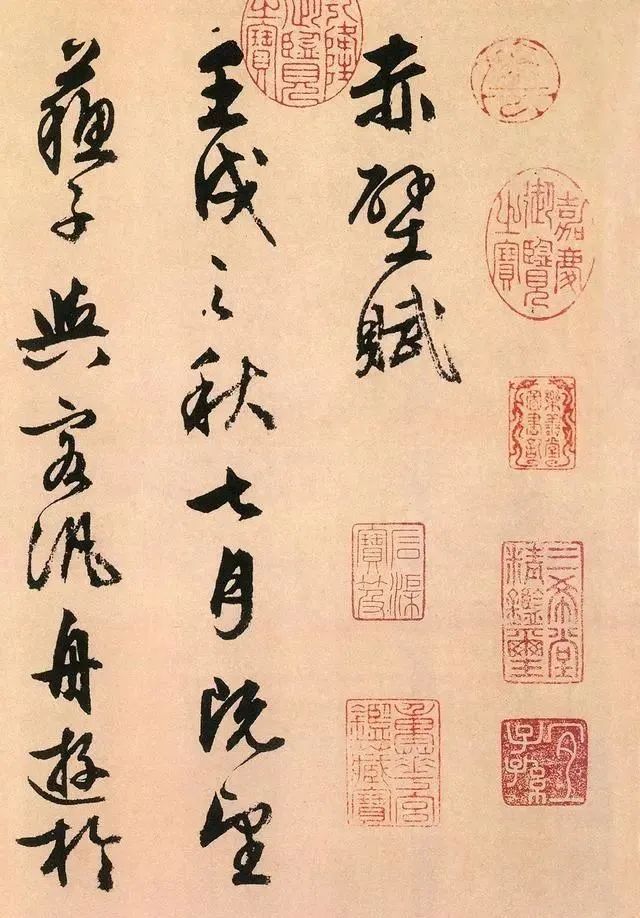 嘉慶
御覽
之寶
樂善堂
圖書記
三希堂
精鑑璽
宜
子孫
赤壁賦
石渠
寶笈
重華宮
鑑藏寶
乾隆
御覽
之寶
壬戌之秋七月既望
蘇子與客汎舟遊於